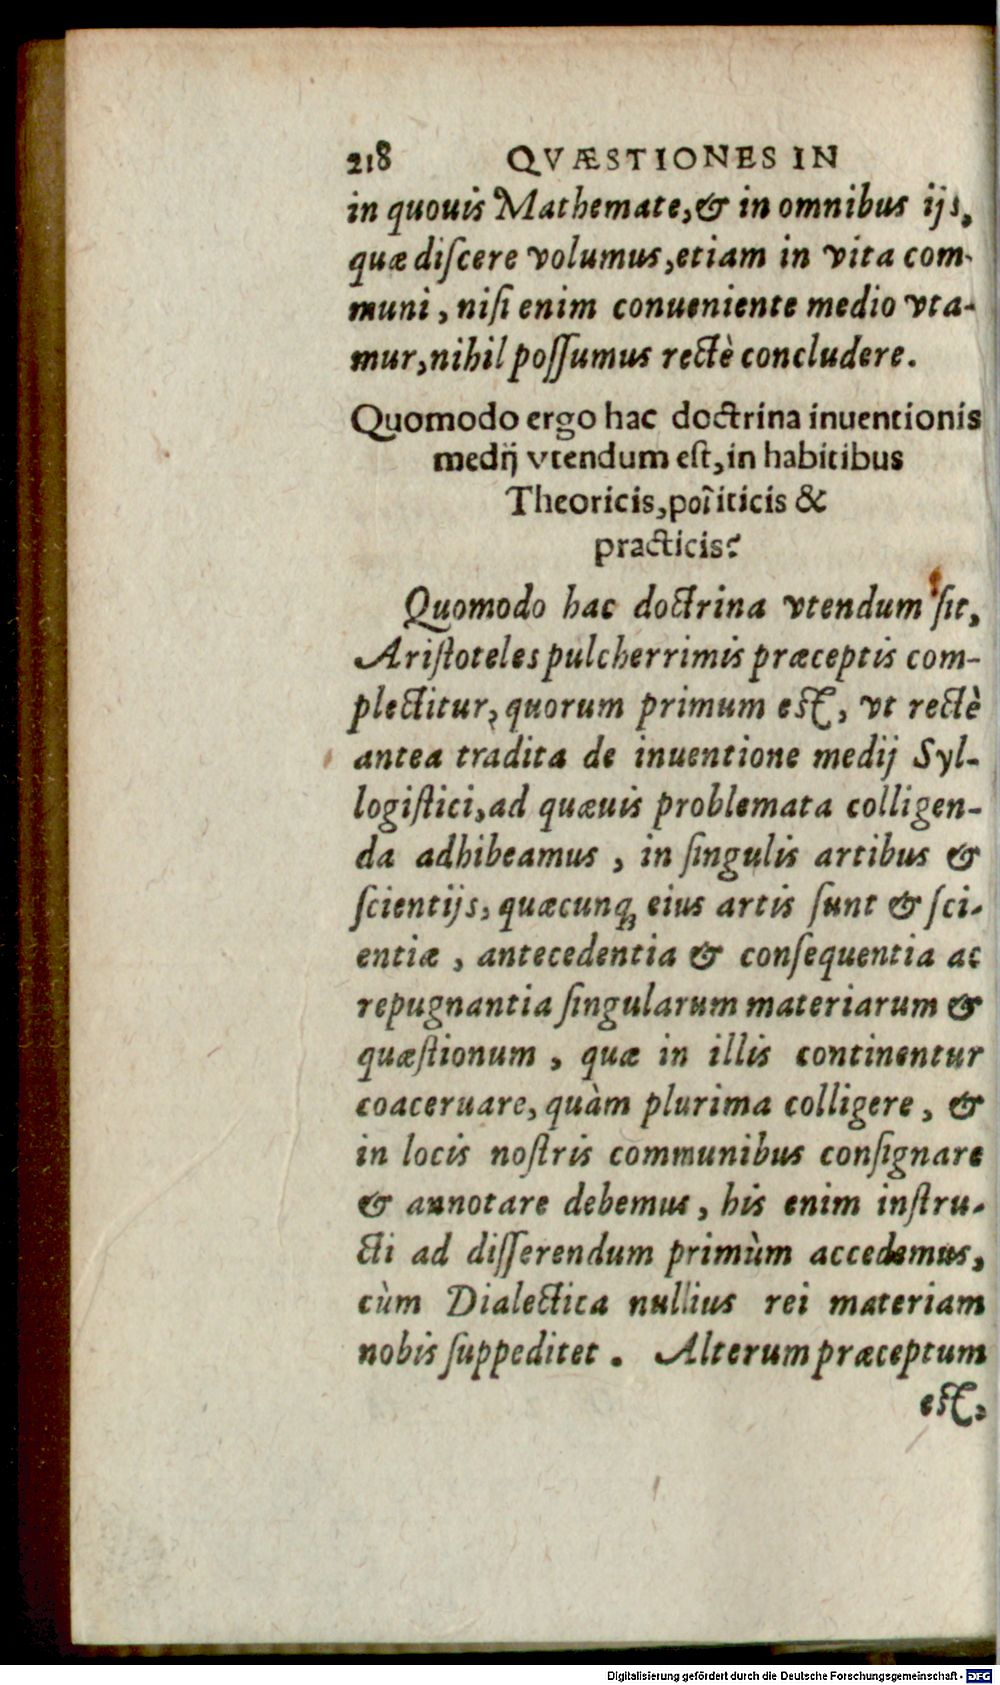 218 QVÆSTIONES IN
in quouis Mathemate,& in omnibus ijs,
quæ diſcere volumus,etiam in vita com-
muni , niſi enim conueniente medio vta-
mur,nihil poſſumus rectè concludere.
Quomodo ergo hac doctrina inuentionis
medij vtendum eſt,in habitibus
Theoricis,poiiticis &
practicis?
Quomodo hac doctrina vtendum ſit,
Ariſtoteles pulcherrimis præceptis com-
plectitur, quorum primum eſt, vt rectè
antea tradita de inuentione medij Syl-
logiſtici,ad quæuis problemata colligen-
da adhibeamus , in ſingulis artibus &
ſcientijs, quæcunq; eius artis ſunt & ſci-
entiæ , antecedentia & conſequentia ac
repugnantia ſingularum materiarum &
quæſtionum , quæ in illis continentur
coaceruare, quàm plurima colligere , &
in locis noſtris communibus conſignare
& annotare debemus , his enim inſtru-
cti ad diſſerendum primùm accedemus,
cùm Dialectica nullius rei materiam
nobis ſuppeditet . Alterum præceptum
eſt,
Digitalisierung gefördert durch die Deutsche Forschungsgemeinschaft - DFG